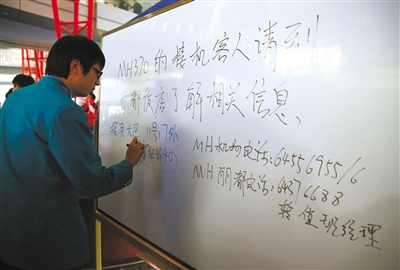 MH370的接机客人请到
都饭店了解相关信息、
MH机场电话:64556955/6
MH丽都电话:64376688
转值班经理